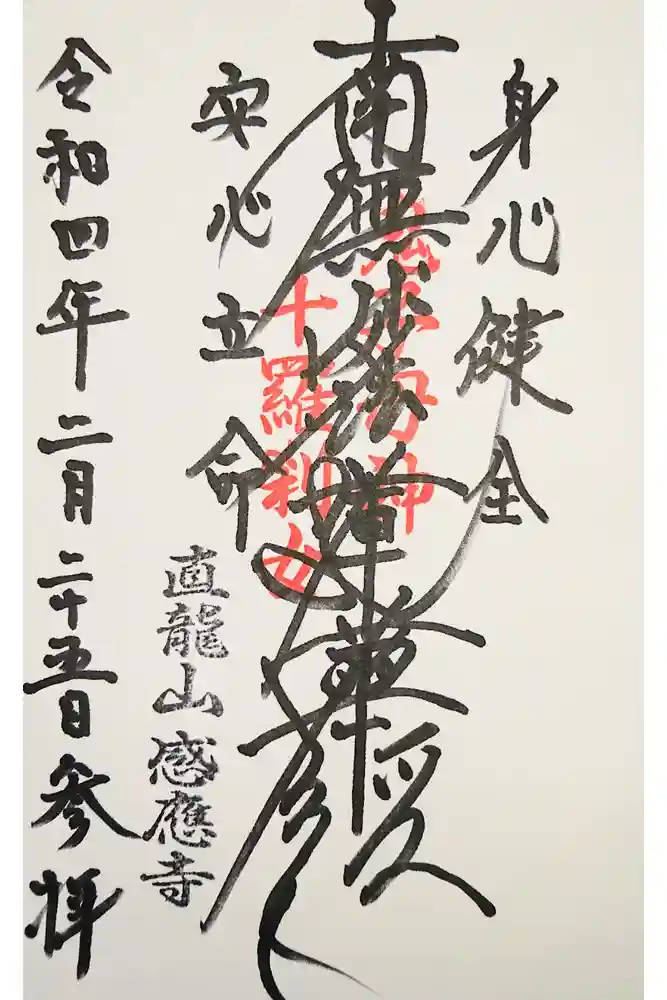 身心健全
鬼子母神
南無妙法蓮華経
授
十羅刹女
安心立命
直龍山感應寺
令和四年二月二十五日参拝